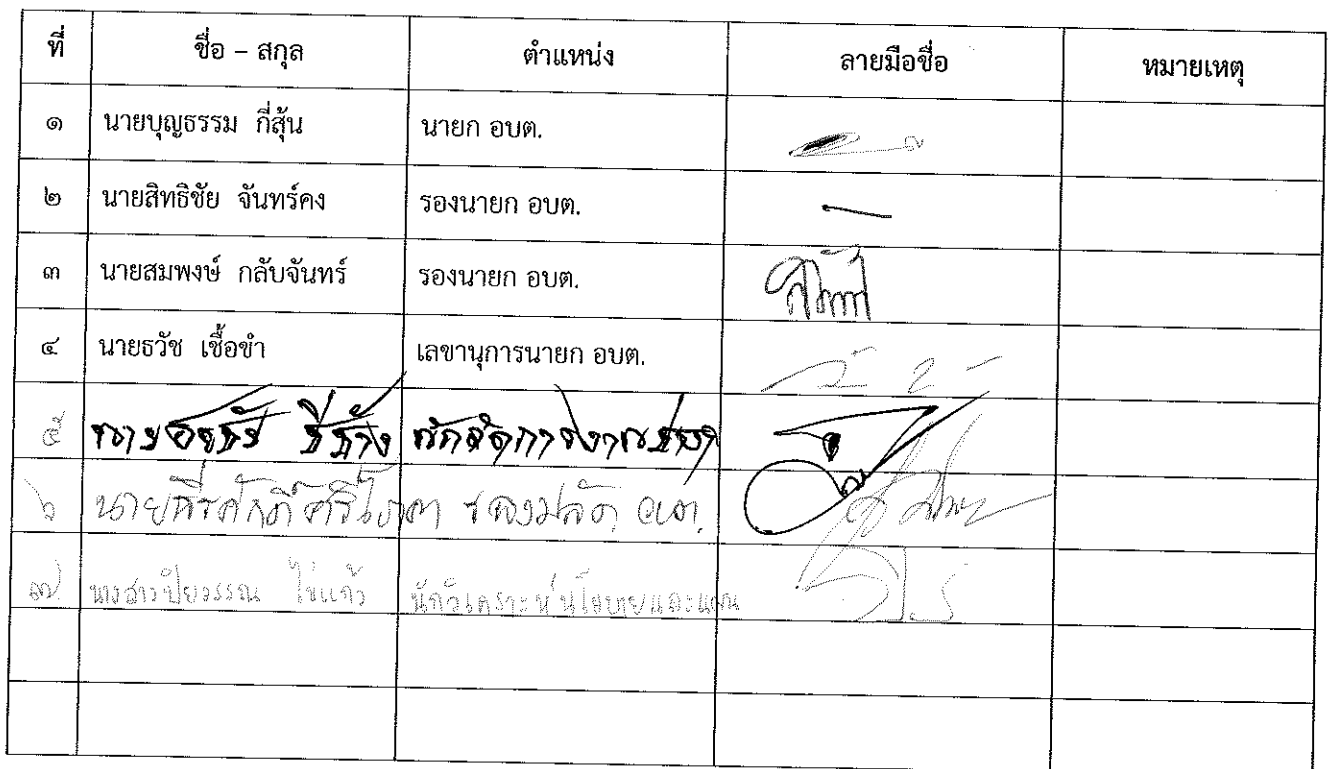 ที่ ชื่อ – สกุล ตำแหน่ง ลายมือชื่อ หมายเหตุ
๑ นายบุญธรรม กี่สุ้น นายก อบต.
๒ นายสิทธิชัย จันทร์คง รองนายก อบต.
๓ นายสมพงษ์ กลับจันทร์ รองนายก อบต.
๔ นายธวัช เชื้อขำ เลขานุการนายก อบต.
๕ นาย
๖ นาย รองปลัด อบต.
๗. นางสาวปิยวรรณ ไข่แก้ว นักวิเคราะห์นโยบายและแผน